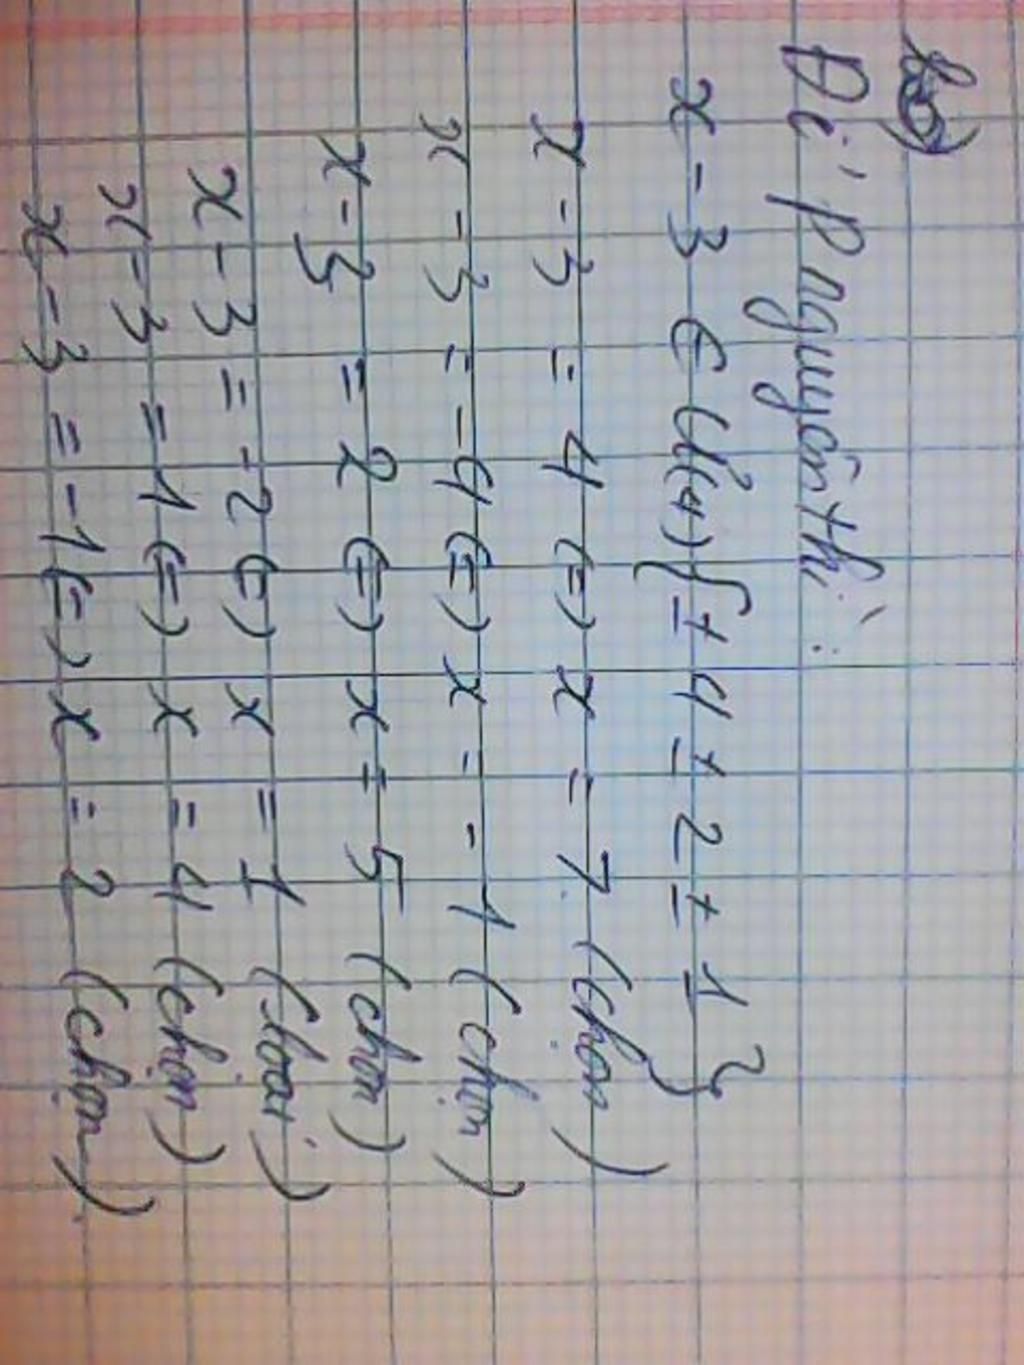 Để P nguyên thì:
x - 3 ∈ Ư(4) {± 4 ± 2 ± 1}
x - 3 = 4 (=) x = 7 (chọn)
x - 3 = -4 (=) x = -1 (chọn)
x - 3 = 2 (=) x = 5 (chọn)
x - 3 = -2 (=) x = 1 (loại)
x - 3 = 1 (=) x = 4 (chọn)
x - 3 = -1 (=) x = 2 (chọn)